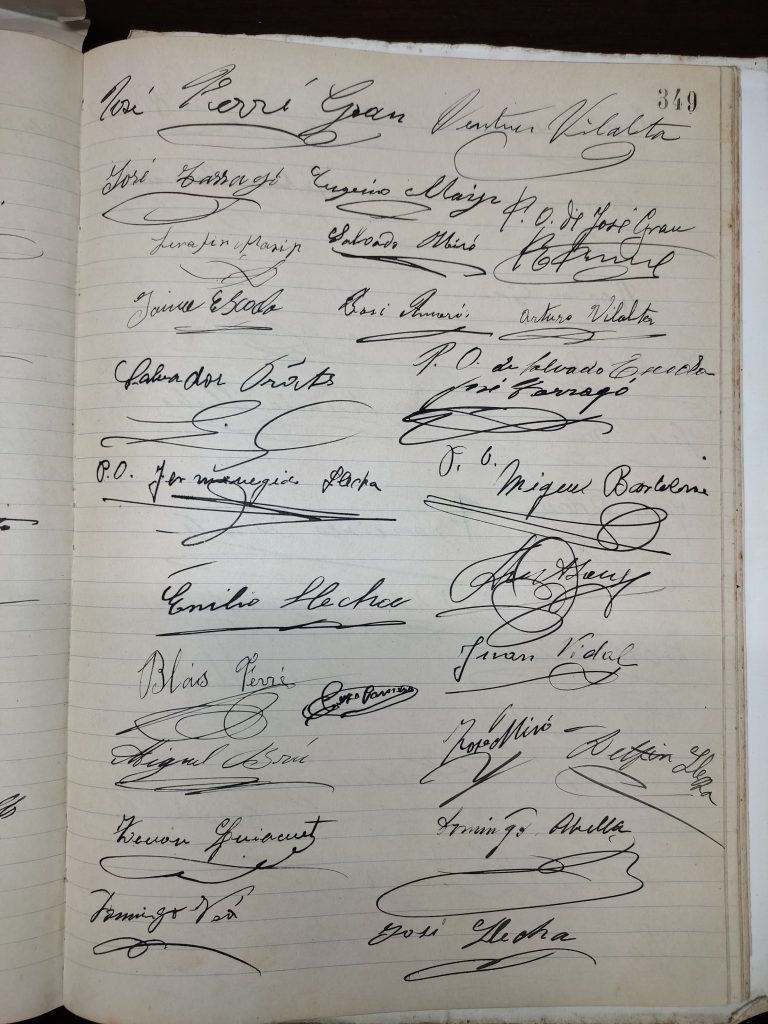 349
José Ferré Grau Ventura Vilalta
José Tarragó Eugenio Masip
P. O. de José Grau
Serafin Masip Salvado Miró
Jaime Escoda José Amorós Arturo Vilalta
Salvador Prats P. O. de Salvado Escoda
José Tarragó
P.O. Jermenegido Llecha P. O.
Miguel Bartolomé
Emilio Llecha
Juan Vidal
Blás Ferré
José Miró Delfin Llecha
Miguel
Domingo Abella
Domingo
José Llecha